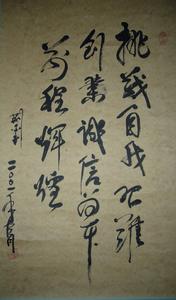 挑战自我知难
创业诚信为本
前程辉煌
二〇〇一年